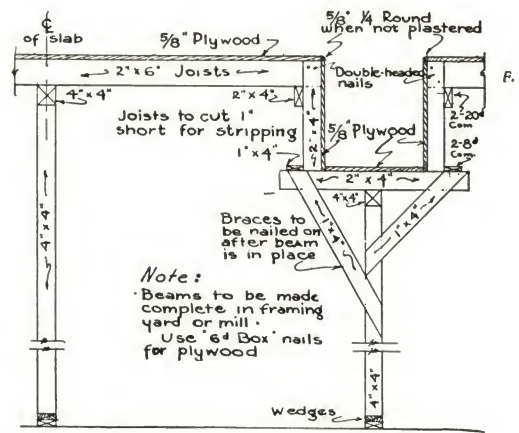 ℄
of slab
5/8" Plywood
5/8" 1/4 Round
when not plastered
2" x 6" Joists
Double-headed
nails
F.
4" x 4"
2" x 4"
Joists to cut 1"
short for stripping
2" x 4"
5/8" Plywood
2-20d
Com.
2-8d
Com.
1" x 4"
2" x 4"
4" x 4"
4" x 4"
1" x 4"
1" x 4"
Braces to
be nailed on
after beam
is in place
Note:
Beams to be made
complete in framing
yard or mill.
Use 6d Box nails
for plywood
4" x 4"
Wedges